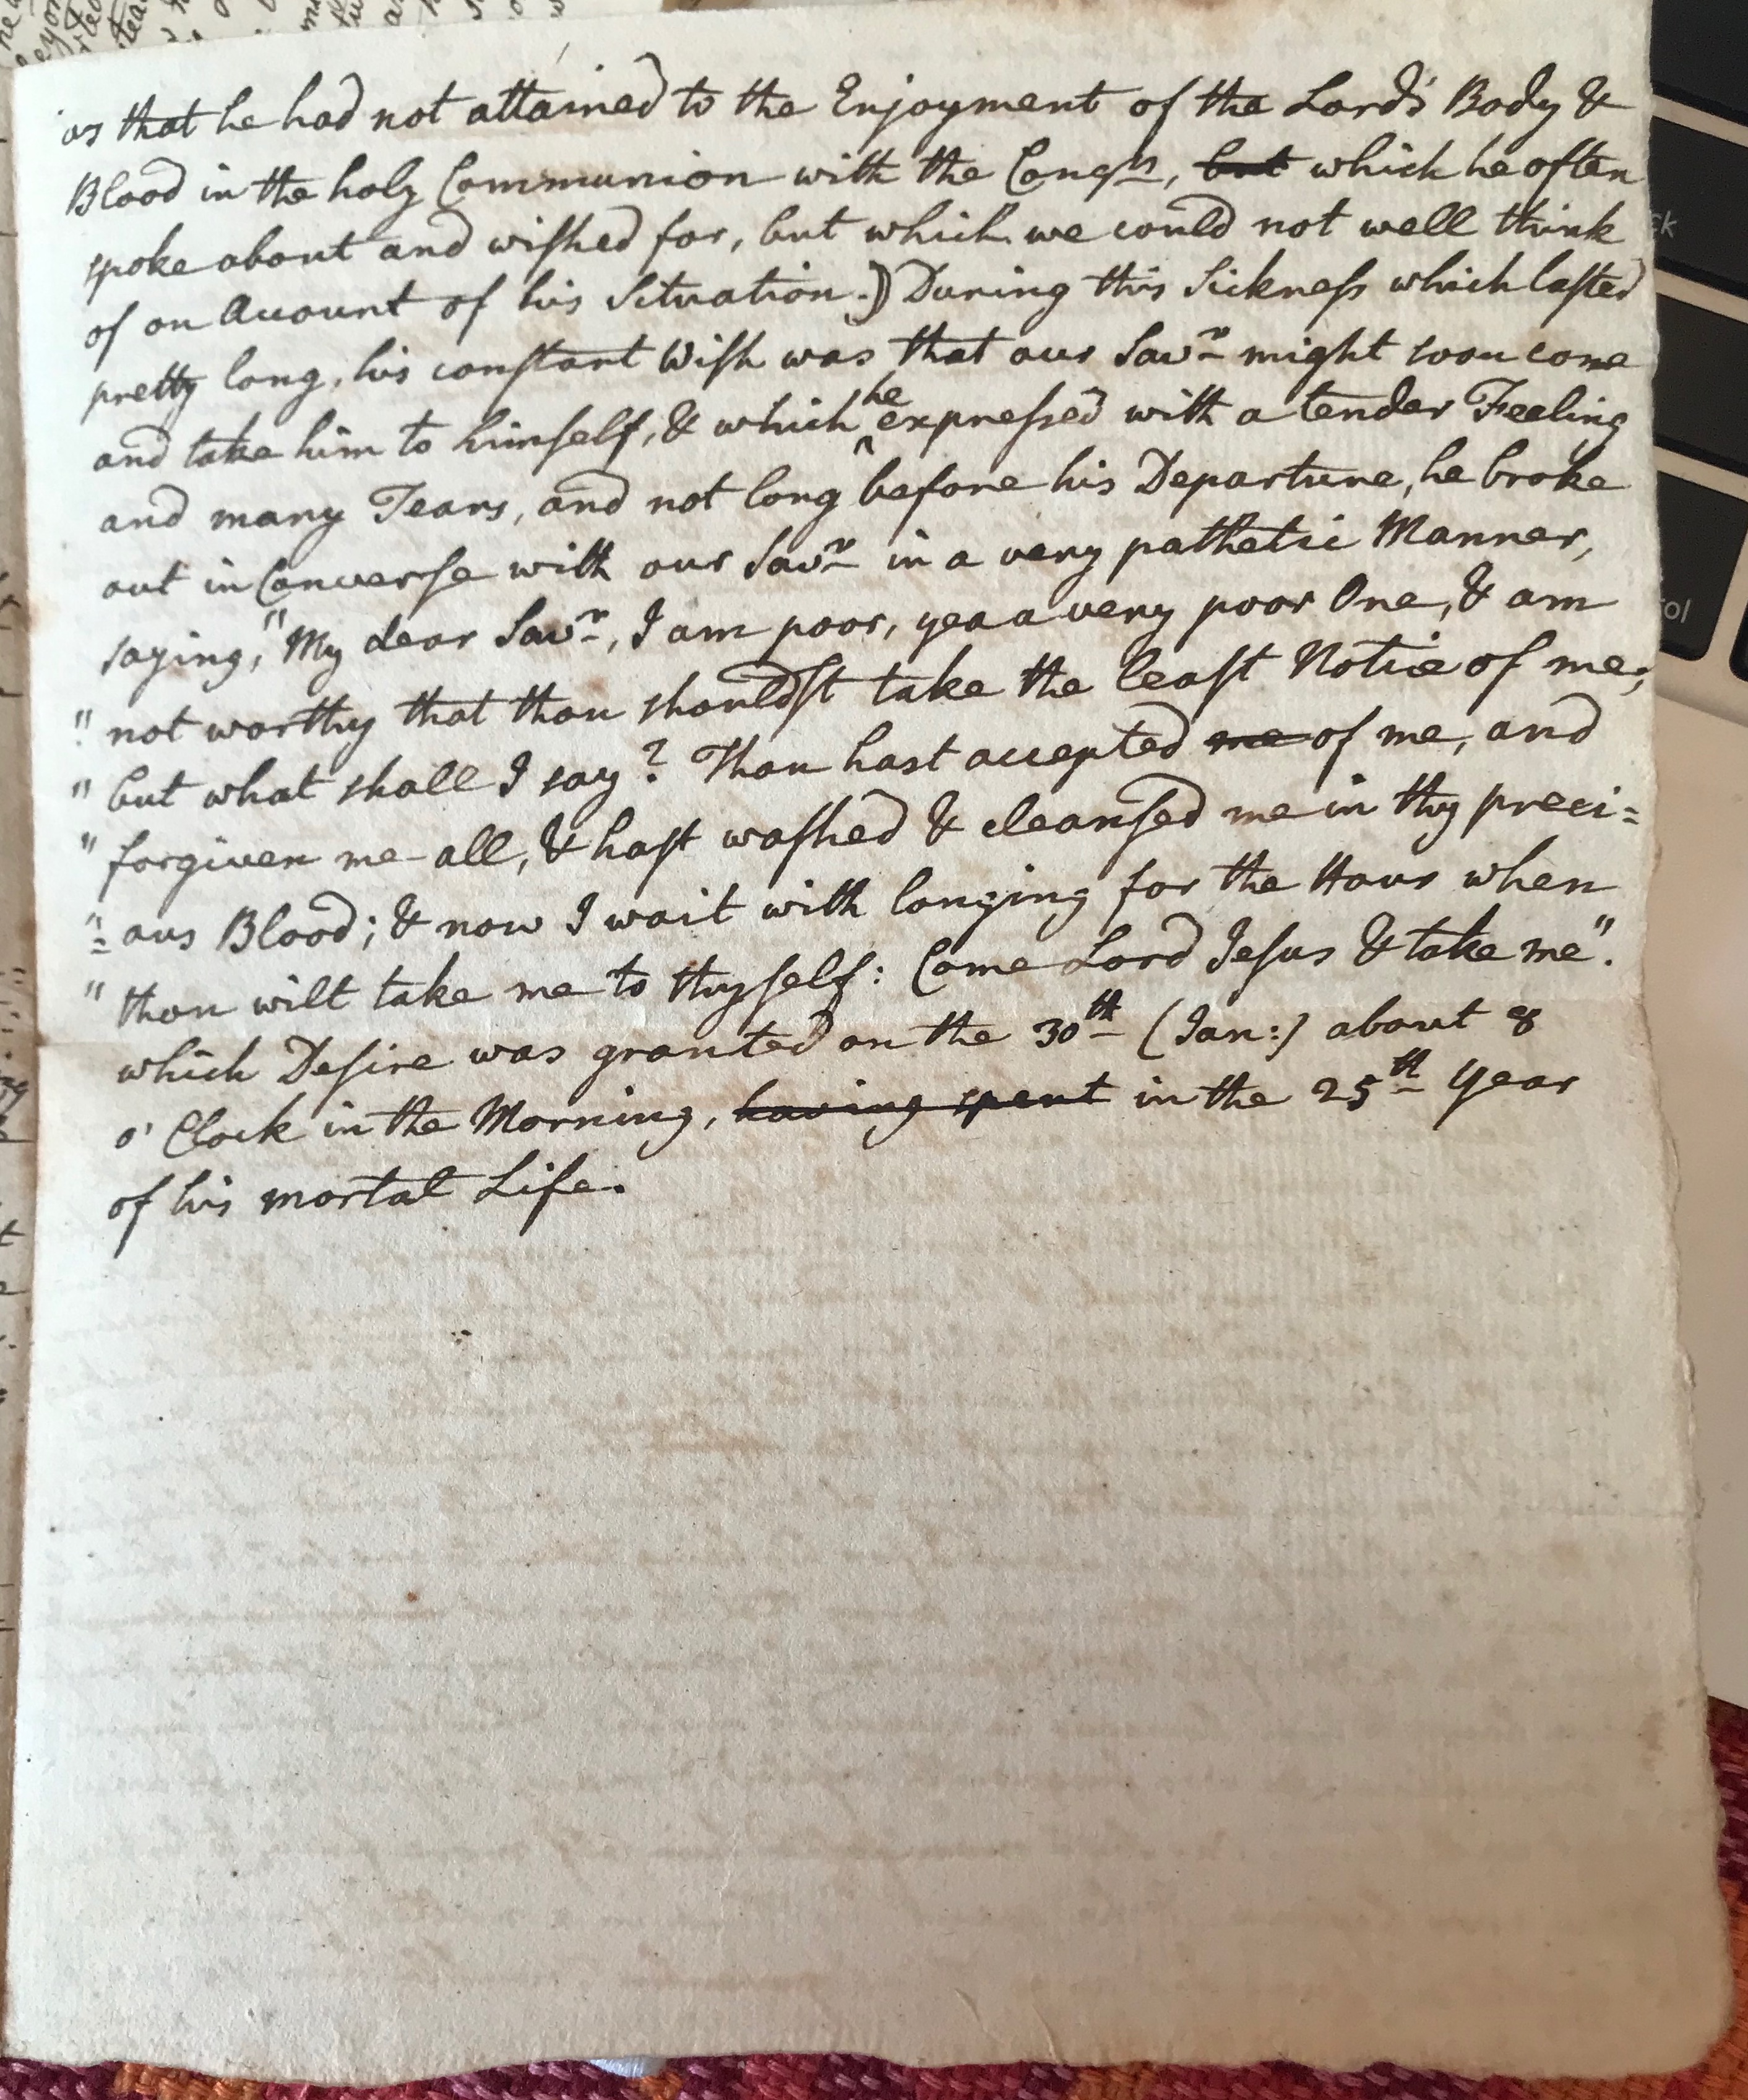 as that he had not attained to the Enjoyment of the Lord's Body &
Blood in the holy Communion with the Congn, but which he often
spoke about and wished for, but which we could not well think
of on Account of his Situation.) During this Sickness which lasted
pretty long, his constant Wish was that our Savr might soon come
and take him to himself, & which he expressed with a tender Feeling
and many Tears, and not long before his Departure, he broke
out in Converse with our Savr in a very pathetic Manner,
saying, "My dear Savr, I am poor, yea a very poor One, & am
" not worthy that thou shouldst take the least Notice of me;
" but what shall I say? Thou hast accepted me of me, and
" forgiven me all, & hast washed & cleansed me in thy preci=
"= ous Blood; & now I wait with longing for the Hour when
" thou wilt take me to thyself: Come Lord Jesus & take me".
which Desire was granted on the 30th (Jan:) about 8
o' Clock in the Morning, having spent in the 25th Year
of his mortal Life.